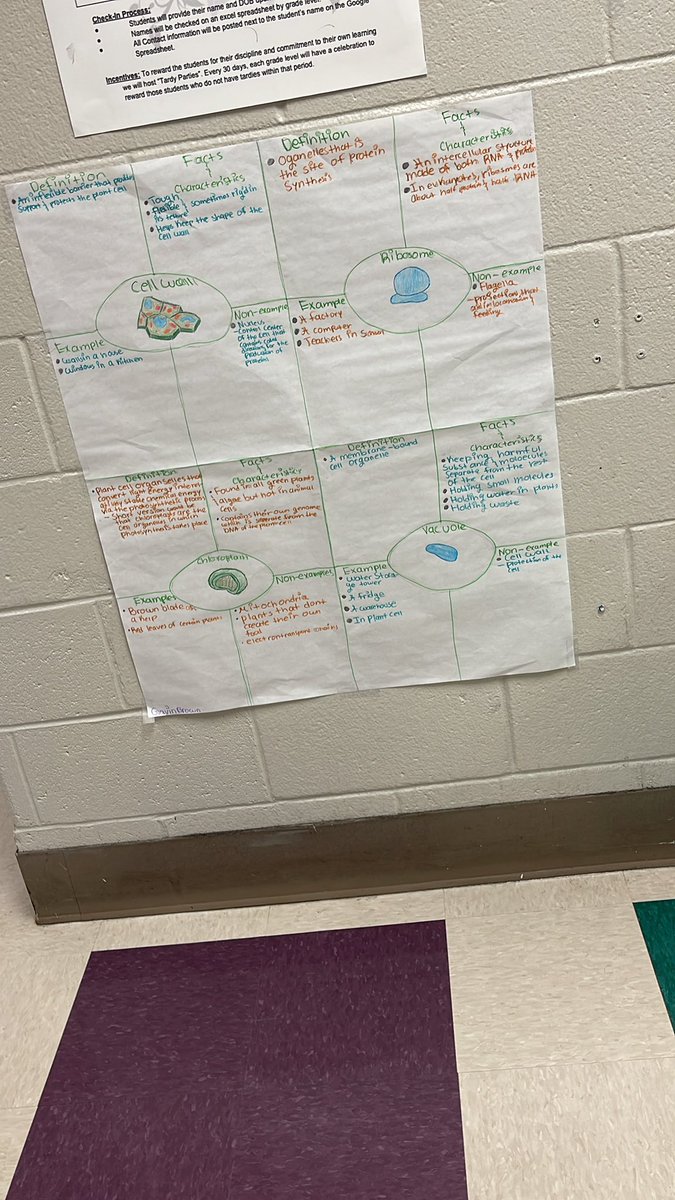 Check-In Process:
Students will provide their name and DOB
Names will be checked on an excel spreadsheet by grade level
All Contact information will be posted next to the student's name on the Google
Spreadsheet.
Incentives: To reward the students for their discipline and commitment to their own learning
we will host "Tardy Parties". Every 30 days, each grade level will have a celebration to
reward those students who do not have tardies within that period.
Definition
An inflexible barrier that
support & protects the plant cell
Facts
&
Characteristics
Tough
flexible & sometimes rigid in
its texture
Helps keep the shape of the
cell wall
Cell wall
Example
walls in a house
windows in a kitchen
Non-example
Nucleus
control center
of the cell that
contains
for the
of
proteins
Definition
Oganelles that is
the site of protein
synthesis
Facts
&
Characteristics
An intercellular structure
made of both RNA & protein
In eukaryotes, ribosomes are
about half protein & half RNA
Ribosome
Example
A factory
A computer
Teachers in School
Non-example
Flagella
feeding
Definition
Plant cell organselles that
convert light energy into
chemical energy
via the photosynthetic
short version would be
that chloroplasts are the
cell organelles in which
photosynthesis takes place
Facts
&
Characteristics
Found in all green plants
& algae but not in animal
cells
contains their own genome
which is seperate from the
DNA of the
Chloroplast
Examples
Brown blade of
a kelp
Red leaves of certain plants
Non-examples
Mitochondria
plants that dont
create their own
food
electron transport chains
Definition
A membrane-bound
cell organelle
Facts
&
Characteristics
Keeping, harmful
substance & moloecules
separate from the rest
of the cell
Holding small molecules
Holding water in plants
Holding waste
Vacuole
Example
water Stora
ge tower
A fridge
A warehouse
In plant cell
Non-example
Cell wall
- protection of the
cell
Brown